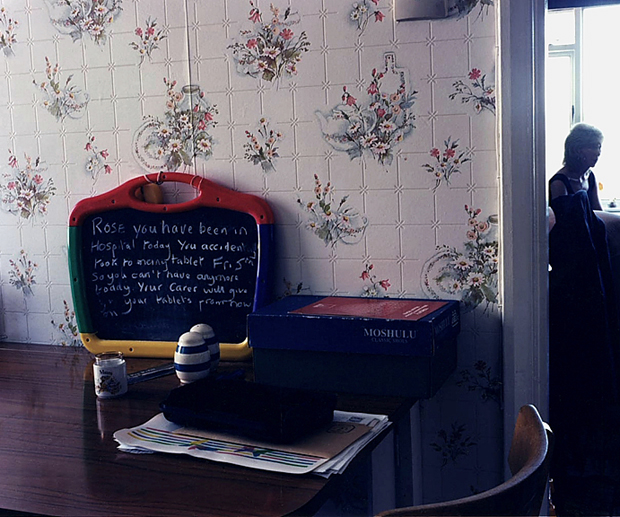 ROSE you have been in
Hospital today. You accident
took to many tablet Fri. 5th
So you can't have anymore
today. Your Carer will give
you your tablets from now
on
MOSHULU